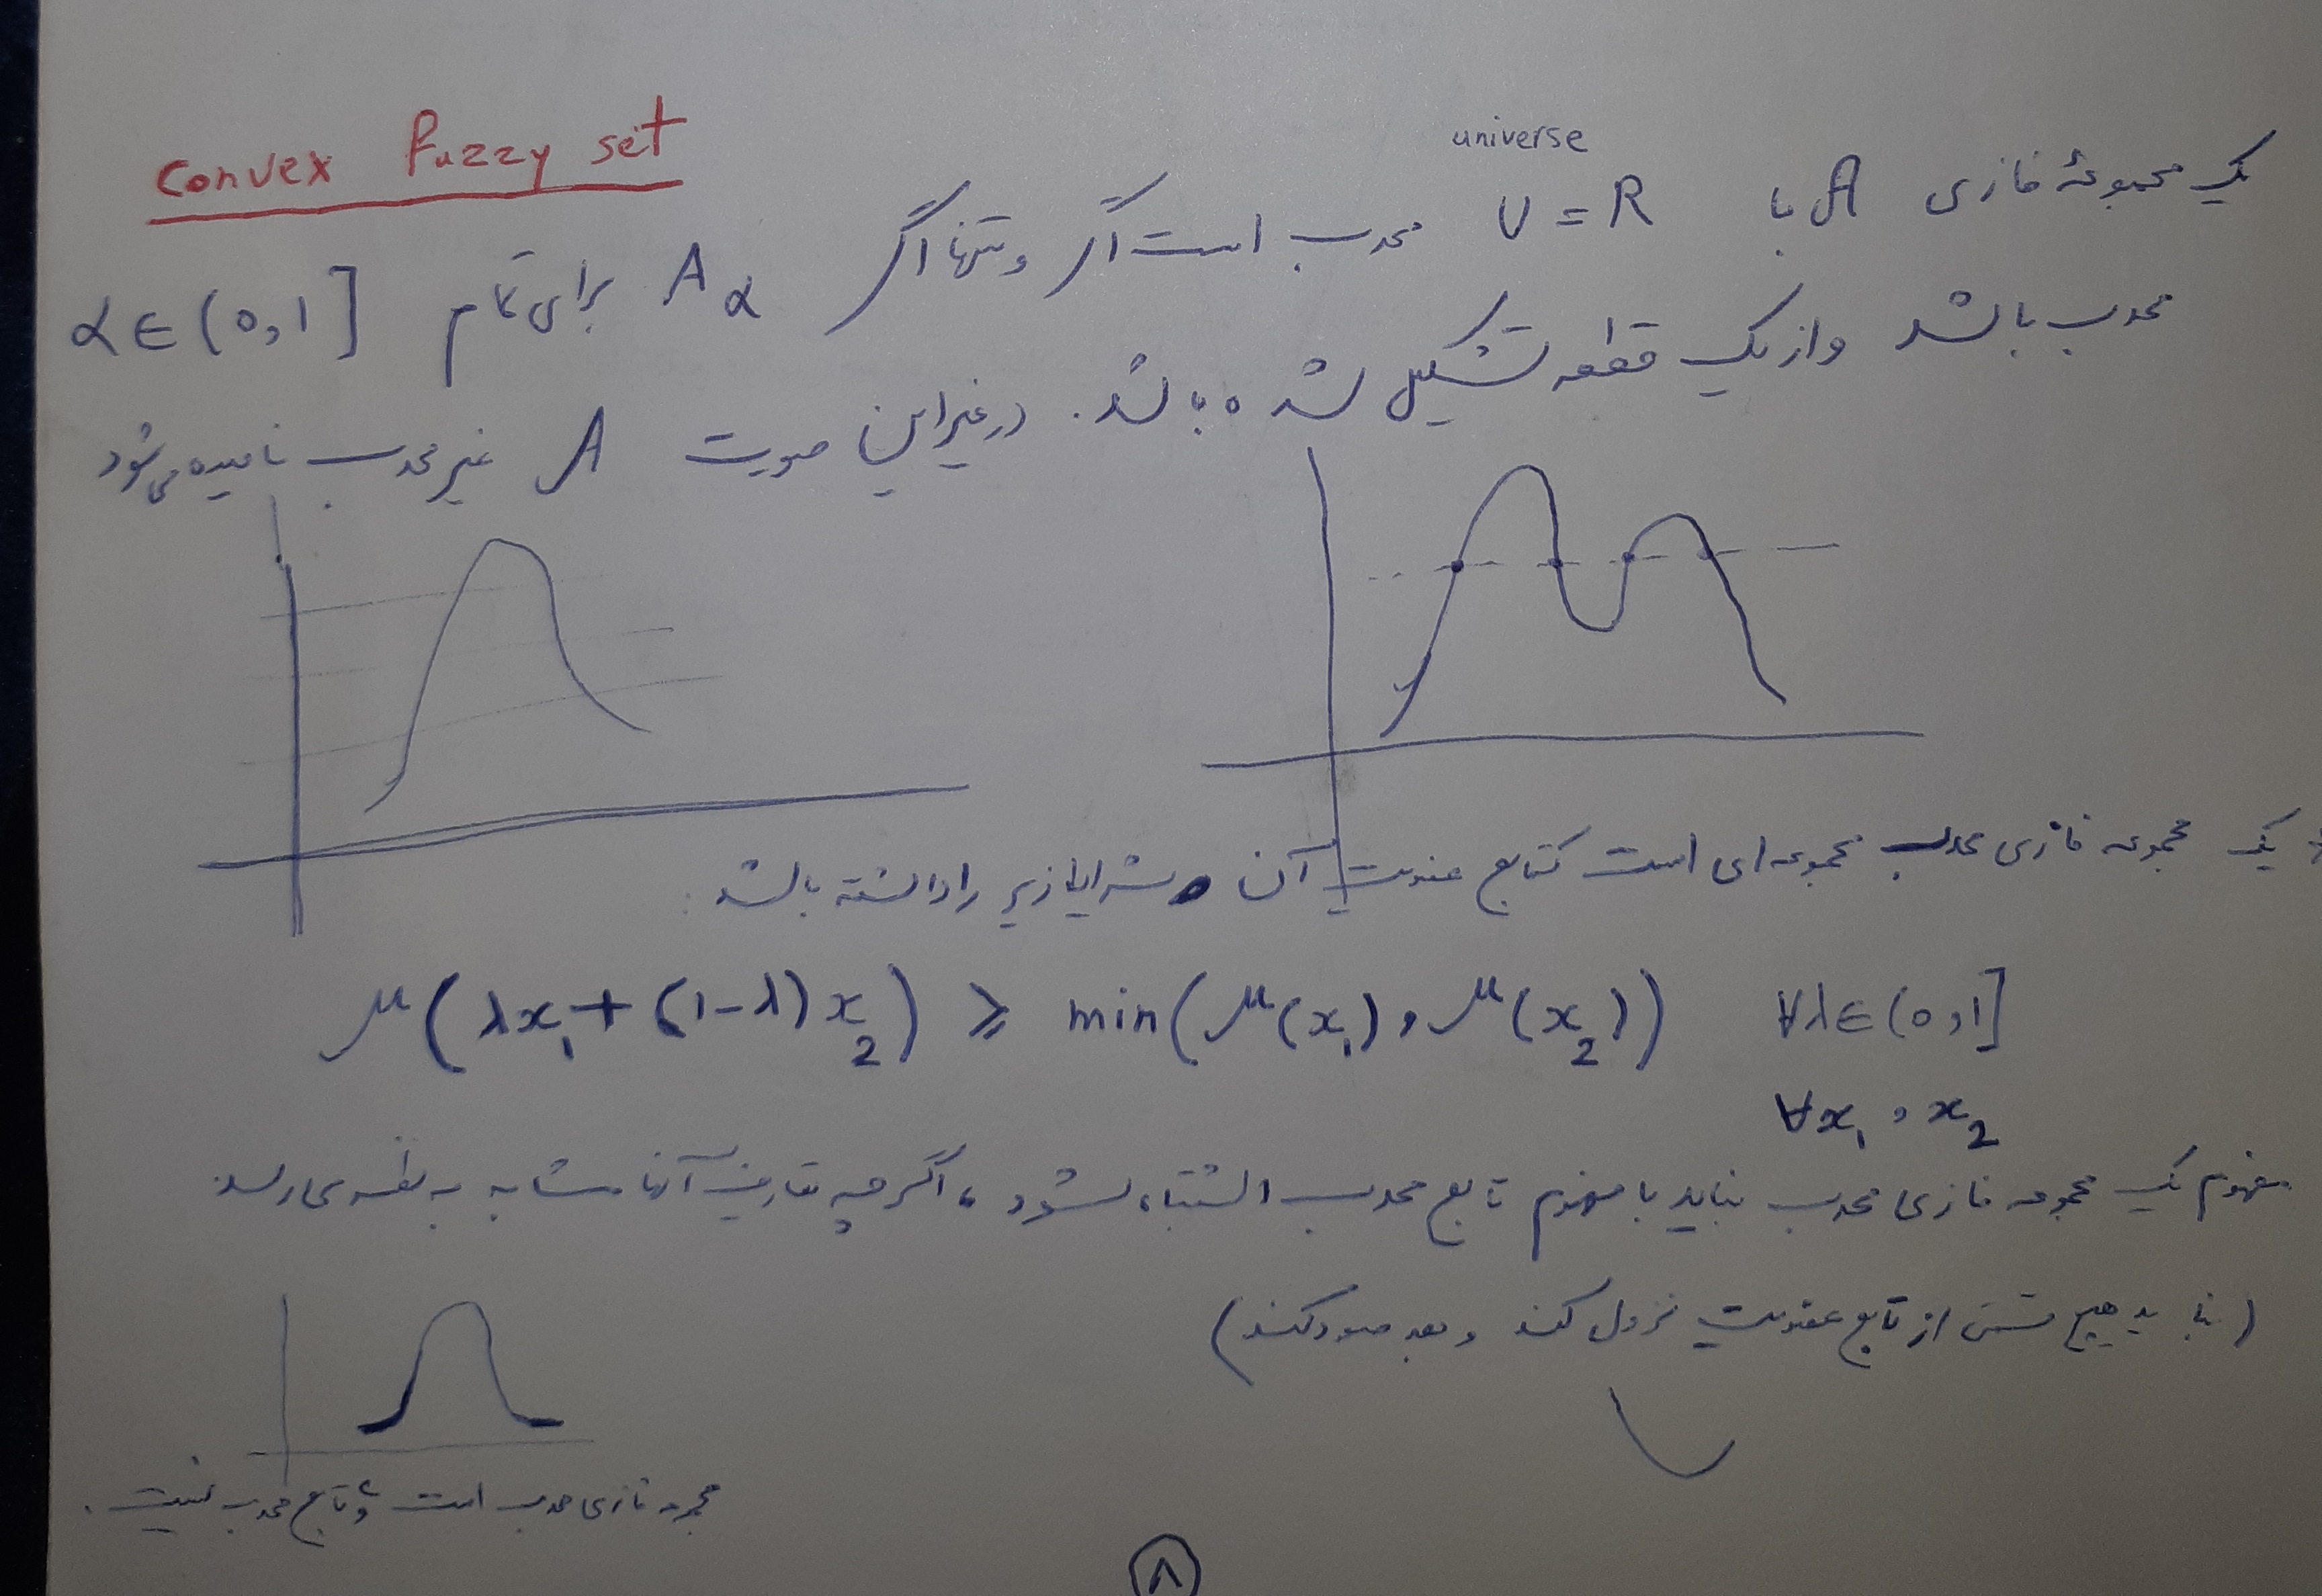 Convex Fuzzy set
universe
یک مجموعهٔ فازی A با U = R محدب است اگر و تنها اگر Aα برای تمام α ∈ (0,1]
محدب باشد و از یک قطعه تشکیل شده باشد. در غیر این صورت A غیر محدب نامیده می‌شود
* یک مجموعه فازی محدب مجموعه‌ای است که تابع عضویت آن شرایط زیر را داشته باشد:
μ(λx₁ + (1-λ)x₂) ≥ min(μ(x₁), μ(x₂)) ∀λ∈(0,1]
∀x₁, x₂
مفهوم یک مجموعه فازی محدب نباید با مفهوم تابع محدب اشتباه شود، اگرچه تعاریف آنها مشابه به نظر می‌رسد.
(نباید هیچ قسمتی از تابع عضویت نزول کند و بعد صعود کند)
مجموعه فازی محدب است و تابع محدب نیست.
۸